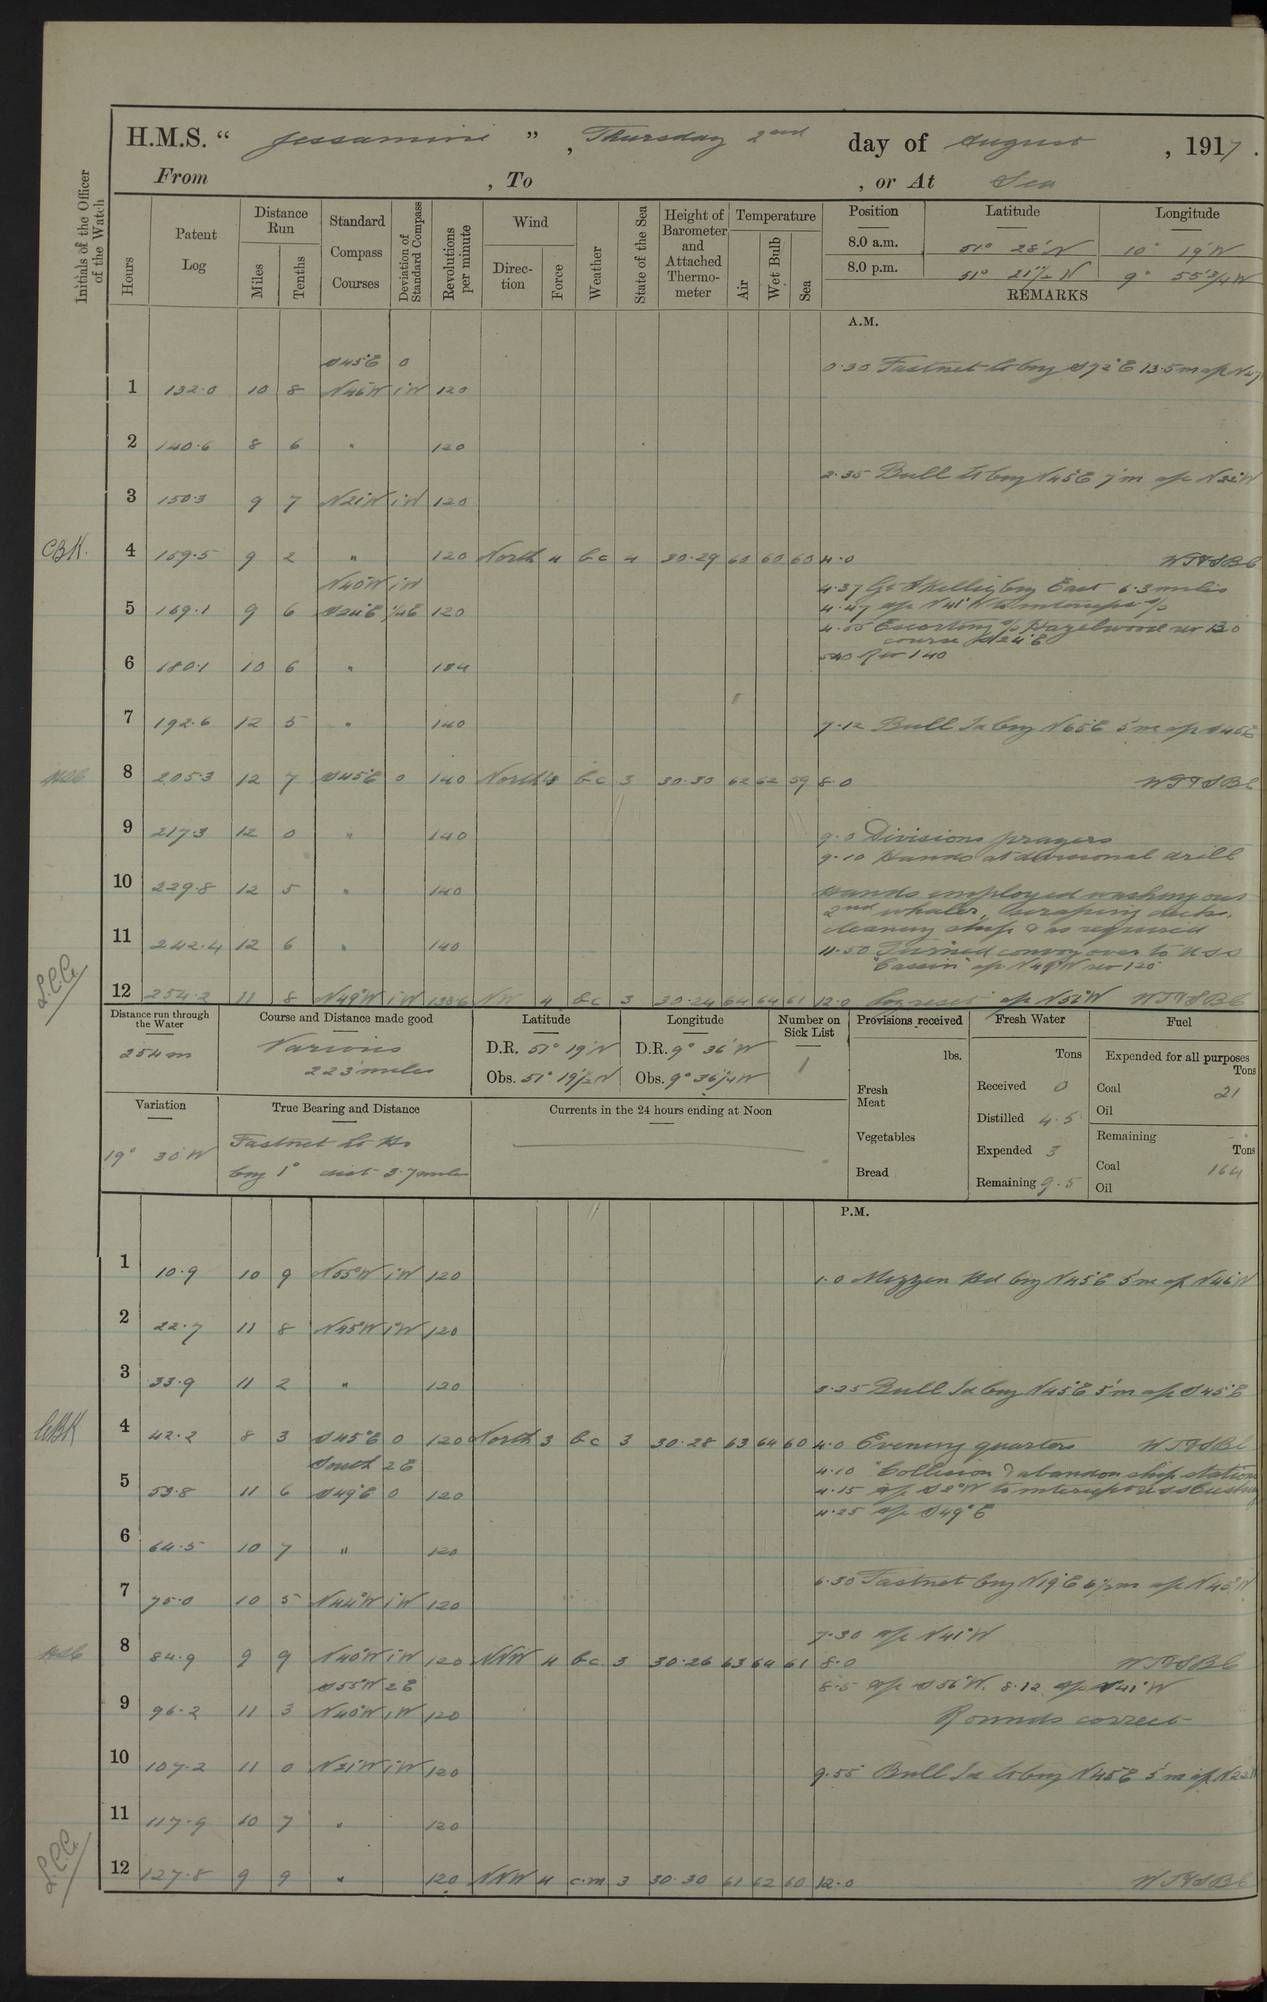 H.M.S. “ Jessamine ” , Thursday 2nd day of August , 1917.
From , To , or At Sea
Initials of the Officer of the Watch
Hours
Patent Log
Distance Run
Miles
Tenths
Standard Compass Courses
Deviation of Standard Compass
Revolutions per minute
Wind
Direction
Force
Weather
State of the Sea
Height of Barometer and Attached Thermometer
Temperature
Air
Wet Bulb
Sea
Position Latitude Longitude
8.0 a.m. 51° 28' N 10° 19' W
8.0 p.m. 51° 21½ N 9° 55 3/4 W
REMARKS
A.M.
S45°E 0 0.30 Fastnet Lt brg S72°E 13.5 m a/c N47
1 132.0 10 8 N46°W 1°W 120
2 140.6 8 6 " 120
2.35 Bull Lt brg N45E 7'm a/c N22°W
3 150.3 9 7 N21°W 1°W 120
CBK. 4 159.5 9 2 " 120 North 4 bc 4 30.29 60 60 60 4.0 WT&SBC
N40°W 1W 4.37 Gt Skellig brg East 6.3 miles
5 169.1 9 6 S24°E ¼E 120 4.47 a/c N41°W to intercept s/s
4.55 Escorting s/s Hazelwood rev 130
course S24°E
6 180.1 10 6 " 134 5.40 Rev 140
7 192.6 12 5 " 140 7.12 Bull Id brg N65E 5'm a/c S45E
8 205.3 12 7 S45°E 0 140 North 3 bc 3 30.30 62 62 59 8.0 WT&SBC
9 217.3 12 0 " 140 9.0 Divisions prayers
9.10 Hands at divisional drill
10 229.8 12 5 " 140 Hands employed washing out
2nd whaler, scraping decks,
cleaning ship & as required
11 242.4 12 6 " 140 11.50 Turned convoy over to USS
"Cassin" a/c N49°W rev 120
L.C.C. 12 254.2 11 8 N49°W 1W 138.6 NW 4 bc 3 30.24 64 64 61 12.0 Log reset a/c N52°W WT&SBC
Distance run through the Water
254 m
Course and Distance made good
Various
223 miles
Latitude
D.R. 51° 19' N
Obs. 51° 19½ N
Longitude
D.R. 9° 36' W
Obs. 9° 36¼ W
Number on Sick List
1
Provisions received
lbs.
Fresh Meat
Vegetables
Bread
Fresh Water
Tons
Received 0
Distilled 4.5
Expended 3
Remaining 9.5
Fuel
Expended for all purposes
Tons
Coal 21
Oil
Remaining
Tons
Coal 164
Oil
Variation
19° 30' W
True Bearing and Distance
Fastnet Lt Ho
brg 1° dist 3.7 miles
Currents in the 24 hours ending at Noon
P.M.
1 10.9 10 9 N55°W 1°W 120 1.0 Mizzen Hd brg N45E 5'm a/c N46°W
2 22.7 11 8 N45°W 1°W 120
3 33.9 11 2 " 120 3.25 Bull Id brg N45°E 5'm a/c S45°E
CBK 4 42.2 8 3 S45°E 0 120 North 3 bc 3 30.28 63 64 60 4.0 Evening quarters WT&SBC
South 2E 4.10 Collision & abandon ship stations
5 53.8 11 6 S49°E 0 120 4.15 a/c S2°W to intercept USS
4.25 a/c S49°E
6 64.5 10 7 " 120
6.30 Fastnet brg N19°E 6½m a/c N45°W
7 75.0 10 5 N44°W 1W 120
7.30 a/c N41°W
8 84.9 9 9 N40°W 1W 120 NNW 4 bc 3 30.26 63 64 61 8.0 WT&SBC
S55°W 2E 8.5 a/c S56°W. 8.12 a/c N41°W
9 96.2 11 3 N40°W 1W 120 Rounds correct
10 107.2 11 0 N21°W 1W 120 9.55 Bull Id Lt brg N45E 5'm a/c N22W
11 117.9 10 7 " 120
L.C.C. 12 127.8 9 9 " 120 NNW 4 c.m 3 30.30 61 62 60 12.0 WT&SBC